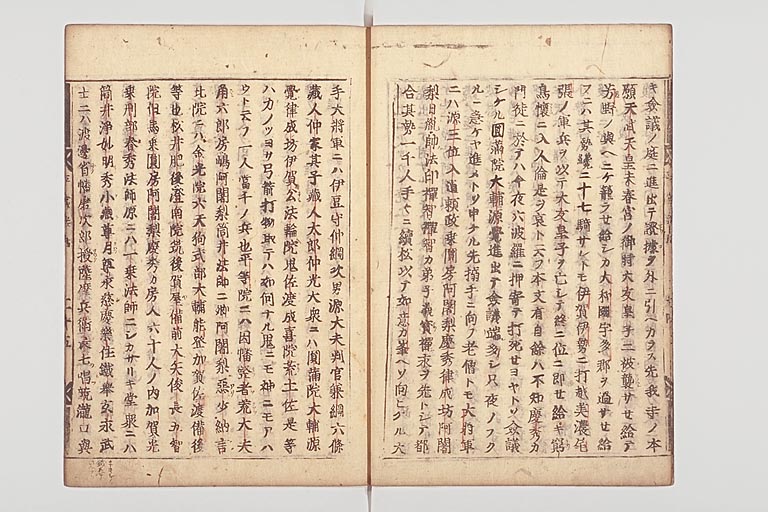 キ僉議ノ庭ニ進出テ證據ヲ外ニ引ヘカラス先我寺ノ本
願天武天皇未春宮ノ御時大友皇子ニ被襲サセ給テ
芳野ノ奥ヘニケ籠ラセ給シカ大和國宇多郡ヲ過サセ給
ニハ其勢纔二十七騎サレトモ伊賀伊勢ニ打越美濃尾
張ノ軍兵ヲ以テ大友皇子ヲ亡シテ終ニ位ニ即セ給キ窮
鳥懐ニ入人倫是ヲ哀トニフ本文有自餘ハ不知慶秀カ
門徒ニ於テハ今夜六波羅ニ押寄テ打死セヨヤトソ僉議
シケル圓滿院大輔源覺進出テ僉議端多シ只夜ノフク
ルニ急ケヤ進メトソ申ケル先搦手ニ向フ老僧トモ大將軍
ニハ源三位入道頼政乗圓房阿闍梨慶秀律成坊阿闍
梨日胤帥法印禪智禪智カ弟子義寳禪永ヲ先トシテ都
合其勢一千人手々ニ續松以テ如意カ峯ヘソ向ヒケル大
手大將軍ニハ伊豆守仲綱次男源大夫判官兼綱六條
藏人仲家其子藏人太郎仲光大衆ニハ圓滿院大輔源
覺律成坊伊賀公法輪院鬼佐渡成喜院荒土佐是等
ハカノツヨサ弓箭打物取テハ如何ナル鬼ニモ神ニモアハ
ウト云フ一人當千ノ兵也平等院ニハ因幡竪者荒大夫
角六郎房嶋阿闍梨筒井法師ニ卿阿闍梨惡少納言
北院ニハ金光院六天狗式部大輔能登加賀佐渡備後
等也松井肥後證南院筑後賀屋備前大矢俊長五智
院但馬乗圓房阿闍梨慶秀カ房人六十人ノ内加賀光
乗刑部春秀法師原ニハ一来法師ニシカサリキ堂衆ニハ
筒井浄妙明秀小藏尊月尊永慈慶樂住鐵拳玄永武
士ニハ渡邊省播磨次郎授薩摩兵衛長七唱競瀧口與